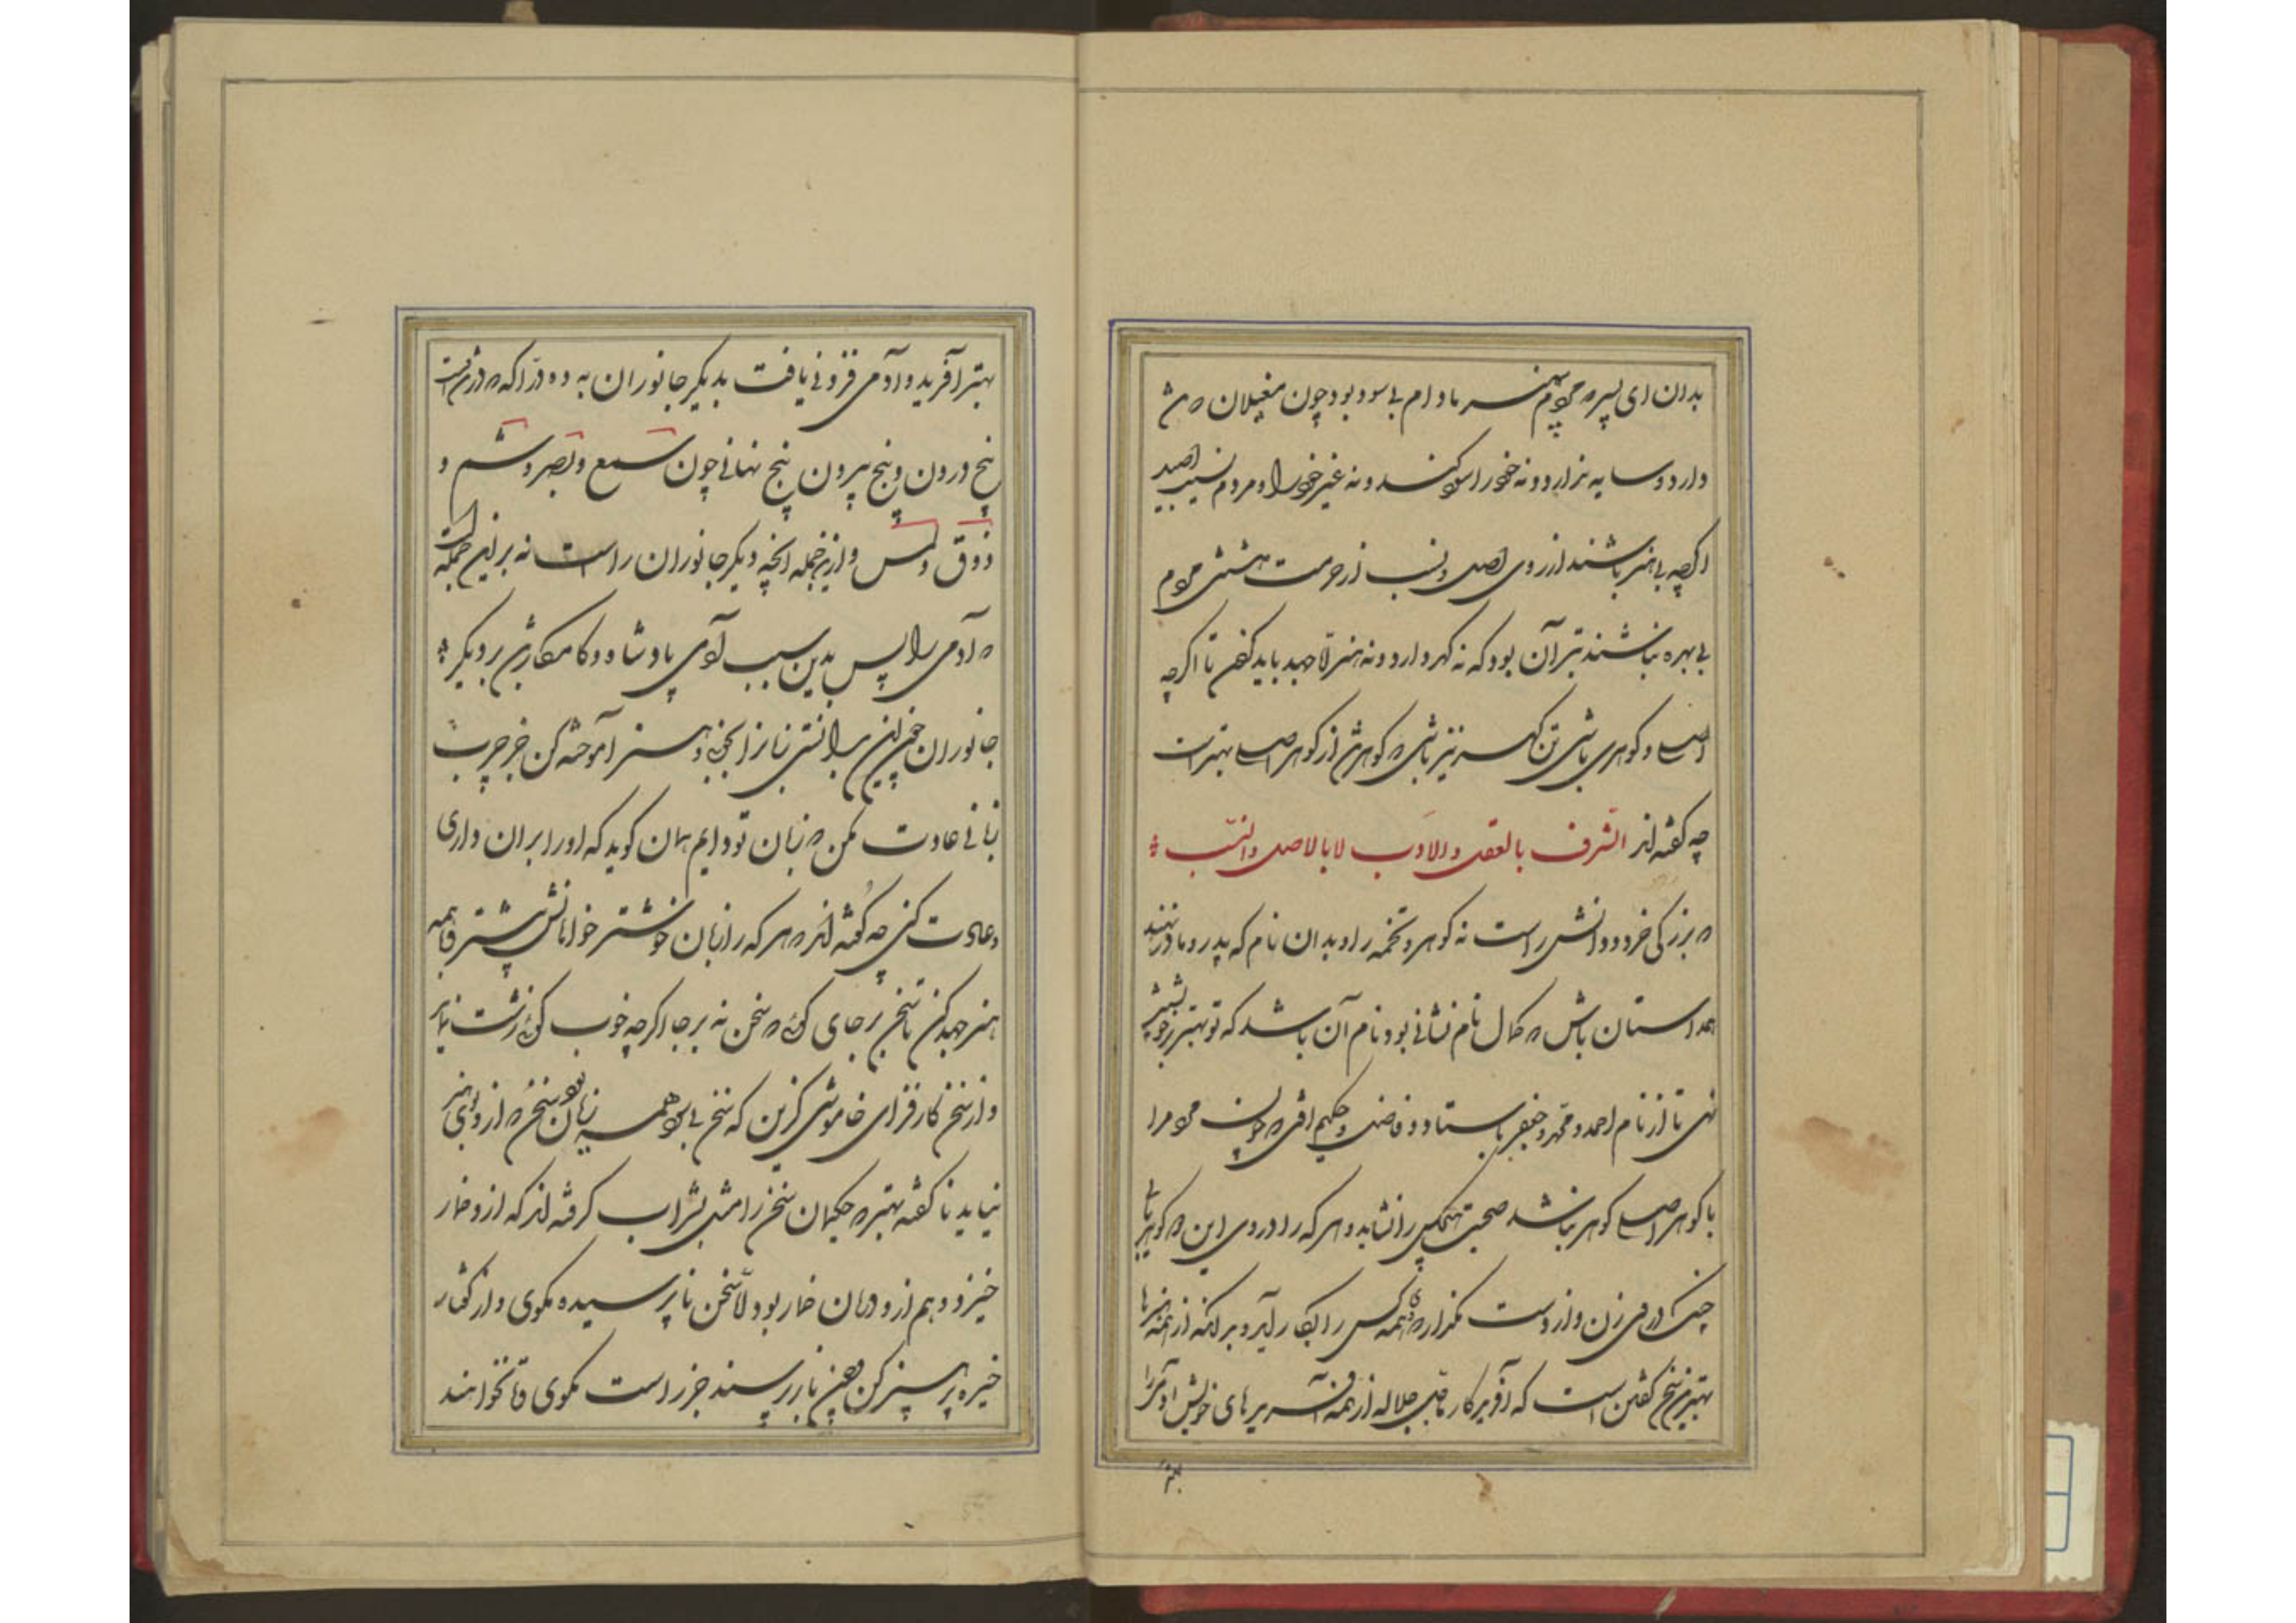 بدان ای پسر که مردم بی هنر مادام بی سود بود چون مغیلان که تن
دارد و سایه ندارد و نه خود را سود کند و نه غیر خود را و مردم بسبب اصل
اگرچه بی هنر باشند از روی اصل و نسب از حرمت داشتن مردم
بی بهره نباشند بتر آن بود که نه گهر دارد و نه هنر لا جهد باید کردن تا اگرچه
اصلی و گوهری باشی تن گهر نیز باشی که گوهر تن از گوهر اصلی بهتر است
چه گفته‌اند الشرف بالعقل والادب لا بالاصل والنسب
که بزرگی خرد و دانش راست نه گوهر و تخمه را و بدان نام که پدر و مادر نهند
همداستان باش که کمال نام نشانی بود نام آن باشد که تو بهنر بر خویشتن
نهی تا از نام احمد و محمد و جعفر باستاد و فاضل و حکیم افتی که چون مردم را
با گوهر اصلی گوهر نباشد صحبت هیچکس را نشاید و هر که را در وی این گوهر یابی
چنگ در وی زن و از دست مگذار که همه کس را بکار آید و بدانکه از همه هنرها
بهترین سخن گفتن است که آفریدگار ما جل جلاله از همه آفریدهای خویش آدمی را
بهتر
بهتر آفرید و آدمی فزونی یافت بدیگر جانوران به ده درجه که در تن است
پنج درون و پنج بیرون پنج نهانی چون سمع و بصر و شم و
ذوق و لمس و ازین جمله آنچه دیگر جانوران راست نه برین جملت است
که آدمی را پس بدین سبب آدمی پادشاه و کامکار شد بر دیگر
جانوران چون این بدانستی زبان را بخوبی و هنر آموخته کن جز چرب
زبانی عادت مکن که زبان تو دایم همان گوید که او را بر آن داری
و عادت کنی چه گفته‌اند هر که را زبان خوشتر هواخواهانش بیشتر و با همه
هنر جهد کن تا سخن بر جای گوئی که سخن نه بر جا اگرچه خوب گوئی زشت نماید
و از سخن کارفزای خاموشی گزین که سخن بی سود همه زیان بود و سخن که از و بوی هنر
نیاید ناگفته بهتر که حکیمان سخن را مثل بشراب کرده‌اند که از و خمار
خیزد و هم از و درمان خمار بود لا سخن ناپرسیده مگوی و از گفتار
خیره پرهیز کن چون باز پرسند جز راست مگوی و تا نخواهند